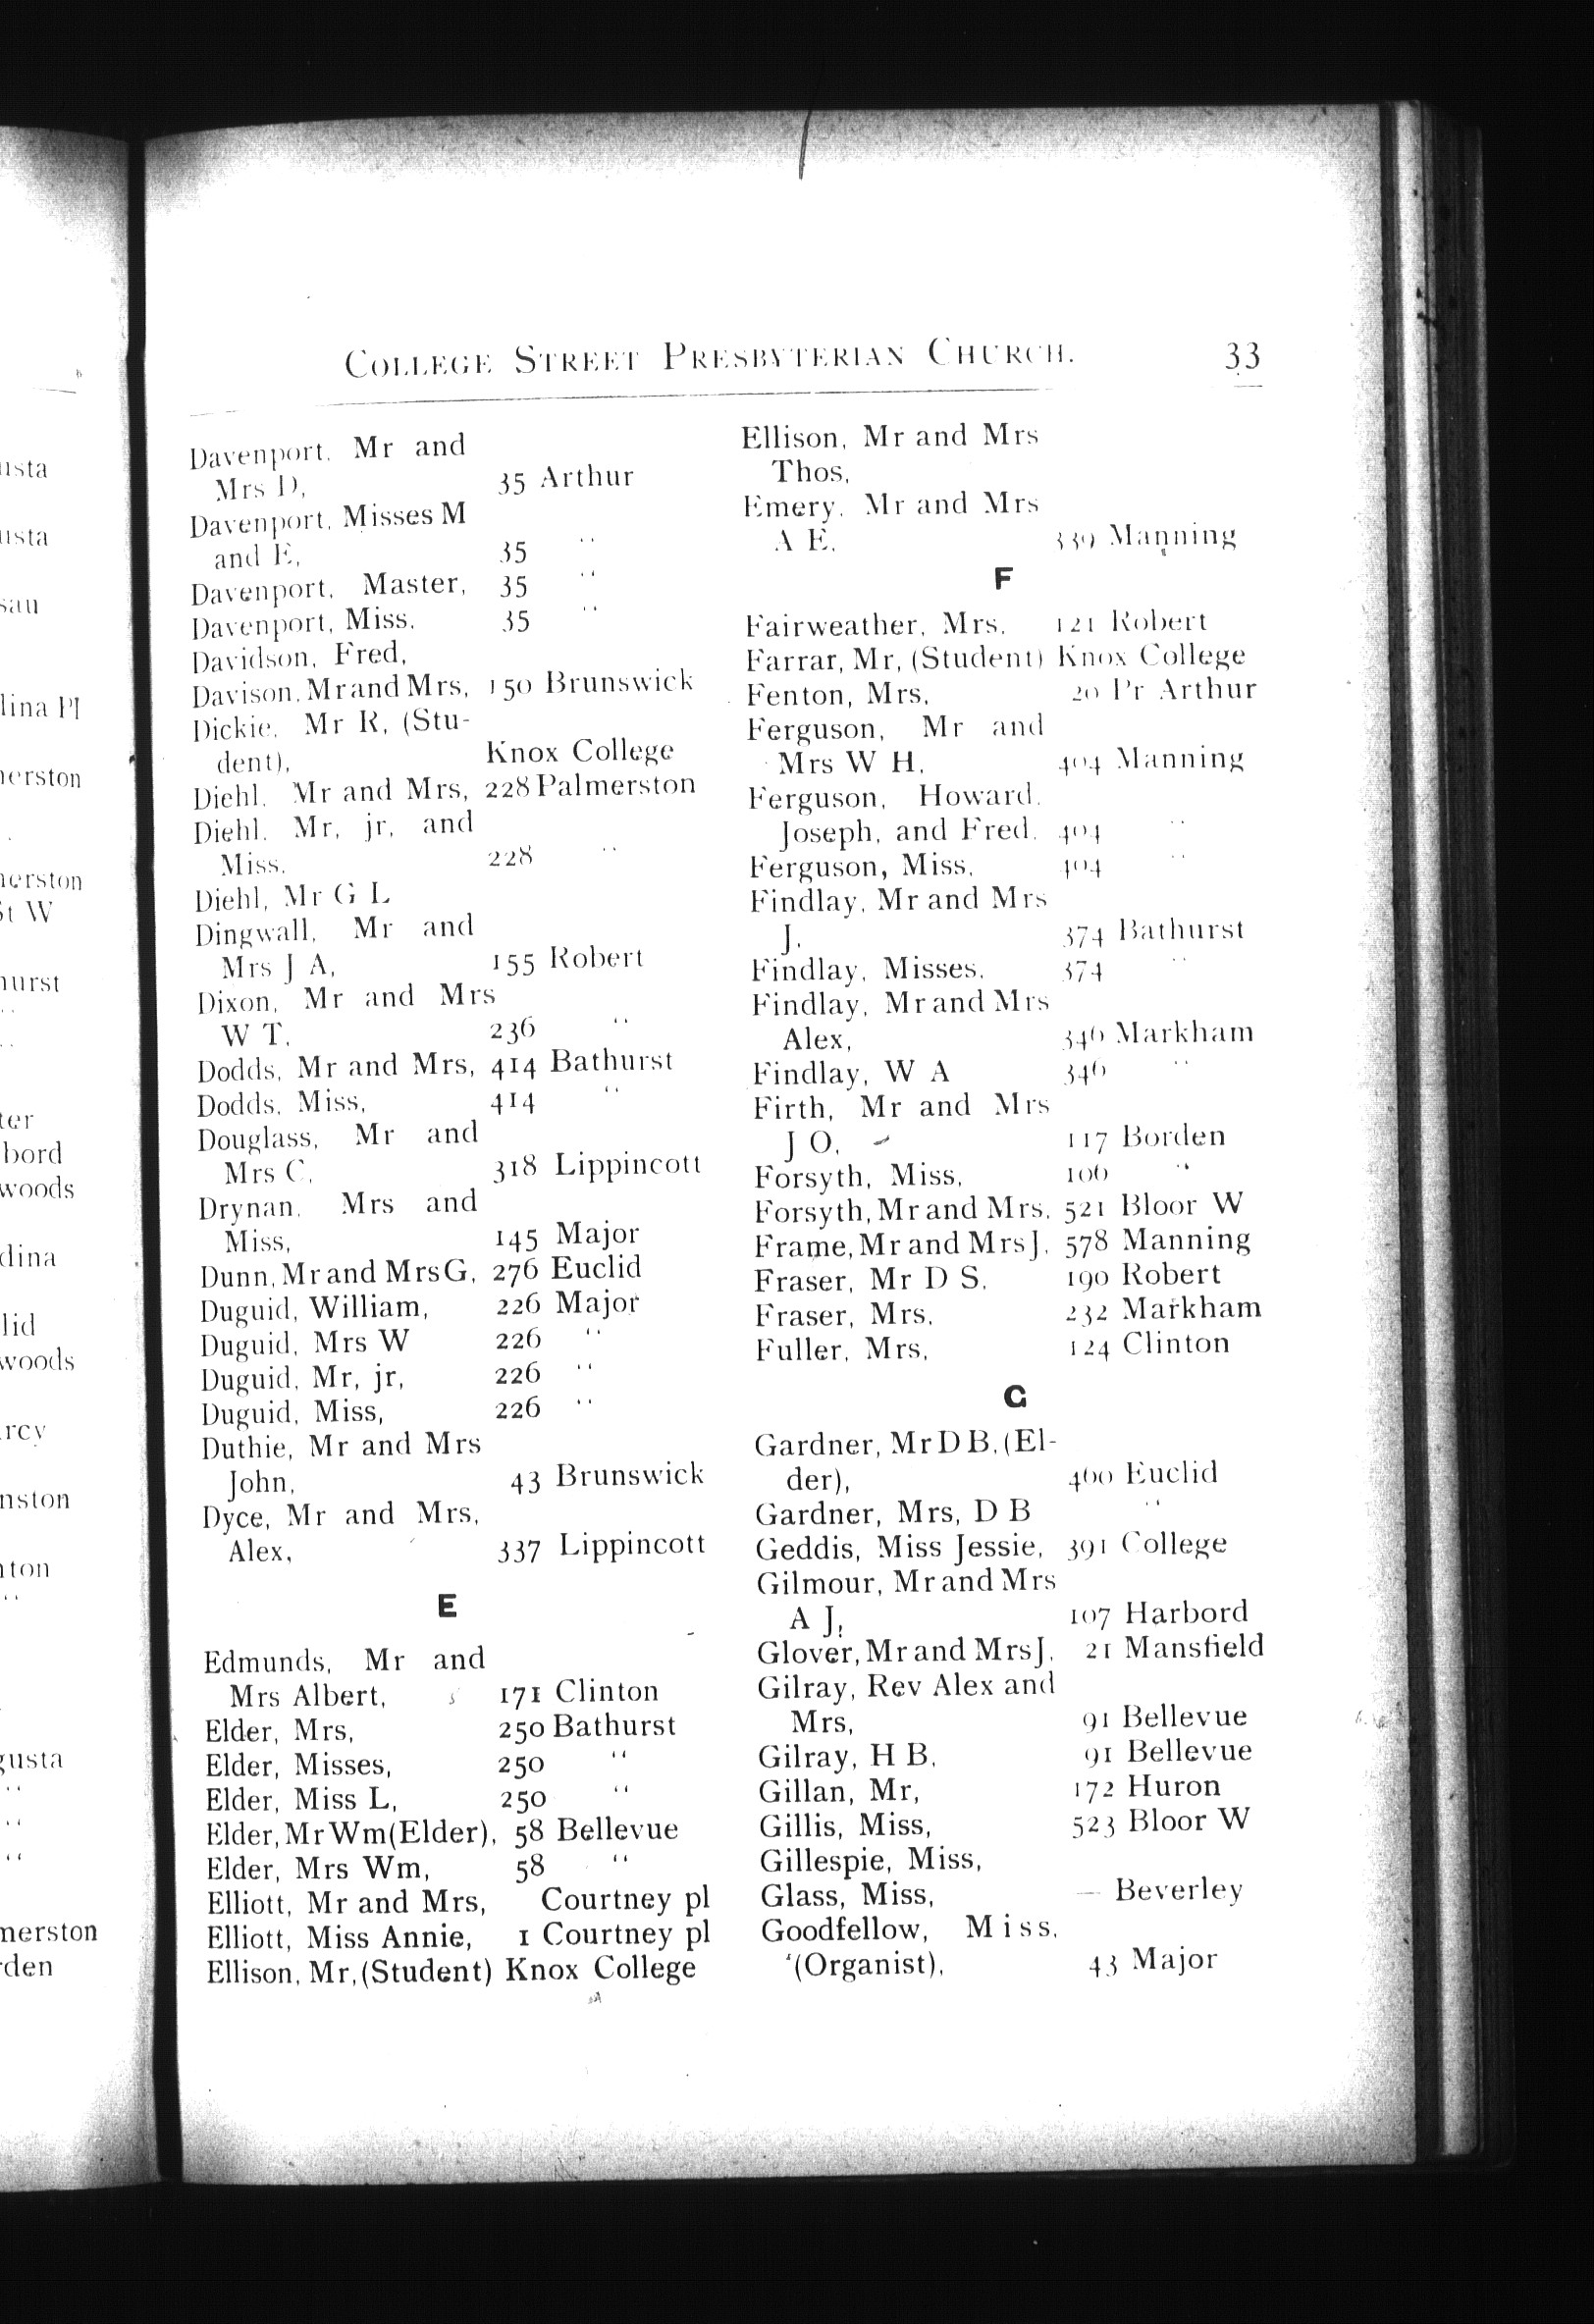 COLLEGE STREET PRESBYTERIAN CHURCH. 33
Davenport, Mr and
Mrs D, 35 Arthur
Davenport, Misses M
and E, 35 "
Davenport, Master, 35 "
Davenport, Miss, 35 "
Davidson, Fred,
Davison, Mr and Mrs, 150 Brunswick
Dickie, Mr R, (Stu-
dent), Knox College
Diehl, Mr and Mrs, 228 Palmerston
Diehl, Mr, jr, and
Miss, 228 "
Diehl, Mr G L
Dingwall, Mr and
Mrs J A, 155 Robert
Dixon, Mr and Mrs
W T, 236 "
Dodds, Mr and Mrs, 414 Bathurst
Dodds, Miss, 414 "
Douglass, Mr and
Mrs C, 318 Lippincott
Drynan, Mrs and
Miss, 145 Major
Dunn, Mr and Mrs G, 276 Euclid
Duguid, William, 226 Major
Duguid, Mrs W 226 "
Duguid, Mr, jr, 226 "
Duguid, Miss, 226 "
Duthie, Mr and Mrs
John, 43 Brunswick
Dyce, Mr and Mrs,
Alex, 337 Lippincott
E
Edmunds, Mr and
Mrs Albert, 171 Clinton
Elder, Mrs, 250 Bathurst
Elder, Misses, 250 "
Elder, Miss L, 250 "
Elder, Mr Wm (Elder), 58 Bellevue
Elder, Mrs Wm, 58 "
Elliott, Mr and Mrs, Courtney pl
Elliott, Miss Annie, 1 Courtney pl
Ellison, Mr, (Student) Knox College
Ellison, Mr and Mrs
Thos,
Emery, Mr and Mrs
A E, 339 Manning
F
Fairweather, Mrs, 121 Robert
Farrar, Mr, (Student) Knox College
Fenton, Mrs, 20 Pr Arthur
Ferguson, Mr and
Mrs W H, 404 Manning
Ferguson, Howard,
Joseph, and Fred, 404 "
Ferguson, Miss, 404 "
Findlay, Mr and Mrs
J, 374 Bathurst
Findlay, Misses, 374 "
Findlay, Mr and Mrs
Alex, 346 Markham
Findlay, W A 346 "
Firth, Mr and Mrs
J O, 117 Borden
Forsyth, Miss, 106 "
Forsyth, Mr and Mrs, 521 Bloor W
Frame, Mr and Mrs J, 578 Manning
Fraser, Mr D S, 190 Robert
Fraser, Mrs, 232 Markham
Fuller, Mrs, 124 Clinton
G
Gardner, Mr D B, (El-
der), 460 Euclid
Gardner, Mrs, D B "
Geddis, Miss Jessie, 391 College
Gilmour, Mr and Mrs
A J, 107 Harbord
Glover, Mr and Mrs J, 21 Mansfield
Gilray, Rev Alex and
Mrs, 91 Bellevue
Gilray, H B, 91 Bellevue
Gillan, Mr, 172 Huron
Gillis, Miss, 523 Bloor W
Gillespie, Miss,
Glass, Miss, — Beverley
Goodfellow, Miss,
(Organist), 43 Major